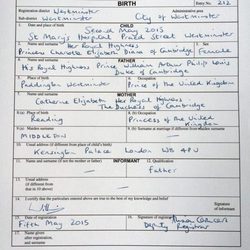 BIRTH
Entry No. 212
Registration district Westminster
Administrative area
Sub-district Westminster
City of Westminster
1. Date and place of birth
CHILD
Second May 2015
St Mary's Hospital Praed Street Westminster
2. Name and surname
Her Royal Highness
Princess Charlotte Elizabeth Diana of Cambridge
3. Sex
Female
4. Name and surname
FATHER
His Royal Highness Prince William Arthur Philip Louis
Duke of Cambridge
5. Place of birth
Paddington Westminster
6. Occupation
Prince of the United Kingdom
7. Name and surname
MOTHER
Catherine Elizabeth Her Royal Highness
Duchess of Cambridge
8.(a) Place of birth
Reading
8.(b) Occupation
Princess of the United
Kingdom
9.(a) Maiden surname
MIDDLETON
9.(b) Surname at marriage if different from maiden surname
10. Usual address
(if different from place of child's birth)
Kensington Palace London W8 4PU
11. Name and surname (if not the mother or father)
INFORMANT
12. Qualification
Father
13. Usual address
(if different from
that in 10 above)
14. I certify that the particulars entered above are true to the best of my knowledge and belief
Signature
of informant
15. Date of registration
Fifth May 2015
16. Signature of registrar
Deputy Registrar
17. Name given
after registration,
and surname